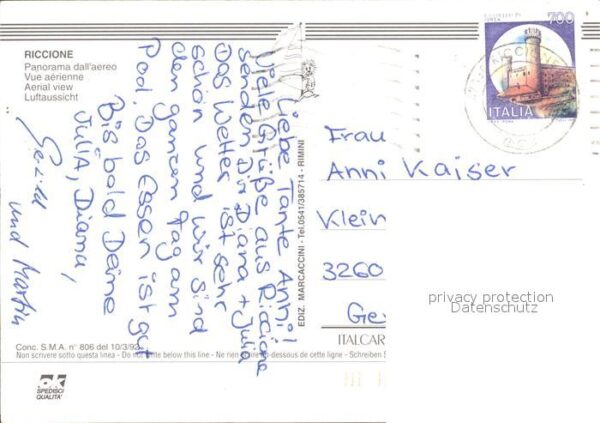 RICCIONE
Panorama dall'aereo
Vue aérienne
Aerial view
Luftaussicht
Liebe Tante Anni!
Viele Grüße aus Riccione
senden Dir Diana + Julia
Das Wetter ist sehr
schön und wir sind
den ganzen Tag am
Pool. Das Essen ist gut
Bis bald Deine
Julia, Diana,
und Martin
EDIZ. MARCACCINI - Tel. 0541/385714 - RIMINI
700
ITALIA
Frau
Anni Kaiser
Klein
3260
Ge
privacy protection
Datenschutz
ITALCAR
Conc. S.M.A. n° 806 del 10/3/92
Non scrivere sotto questa linea - Do not write below this line - Ne rien écrire au-dessous de cette ligne - Schreiben S
OK
SPEDISCI
QUALITA'